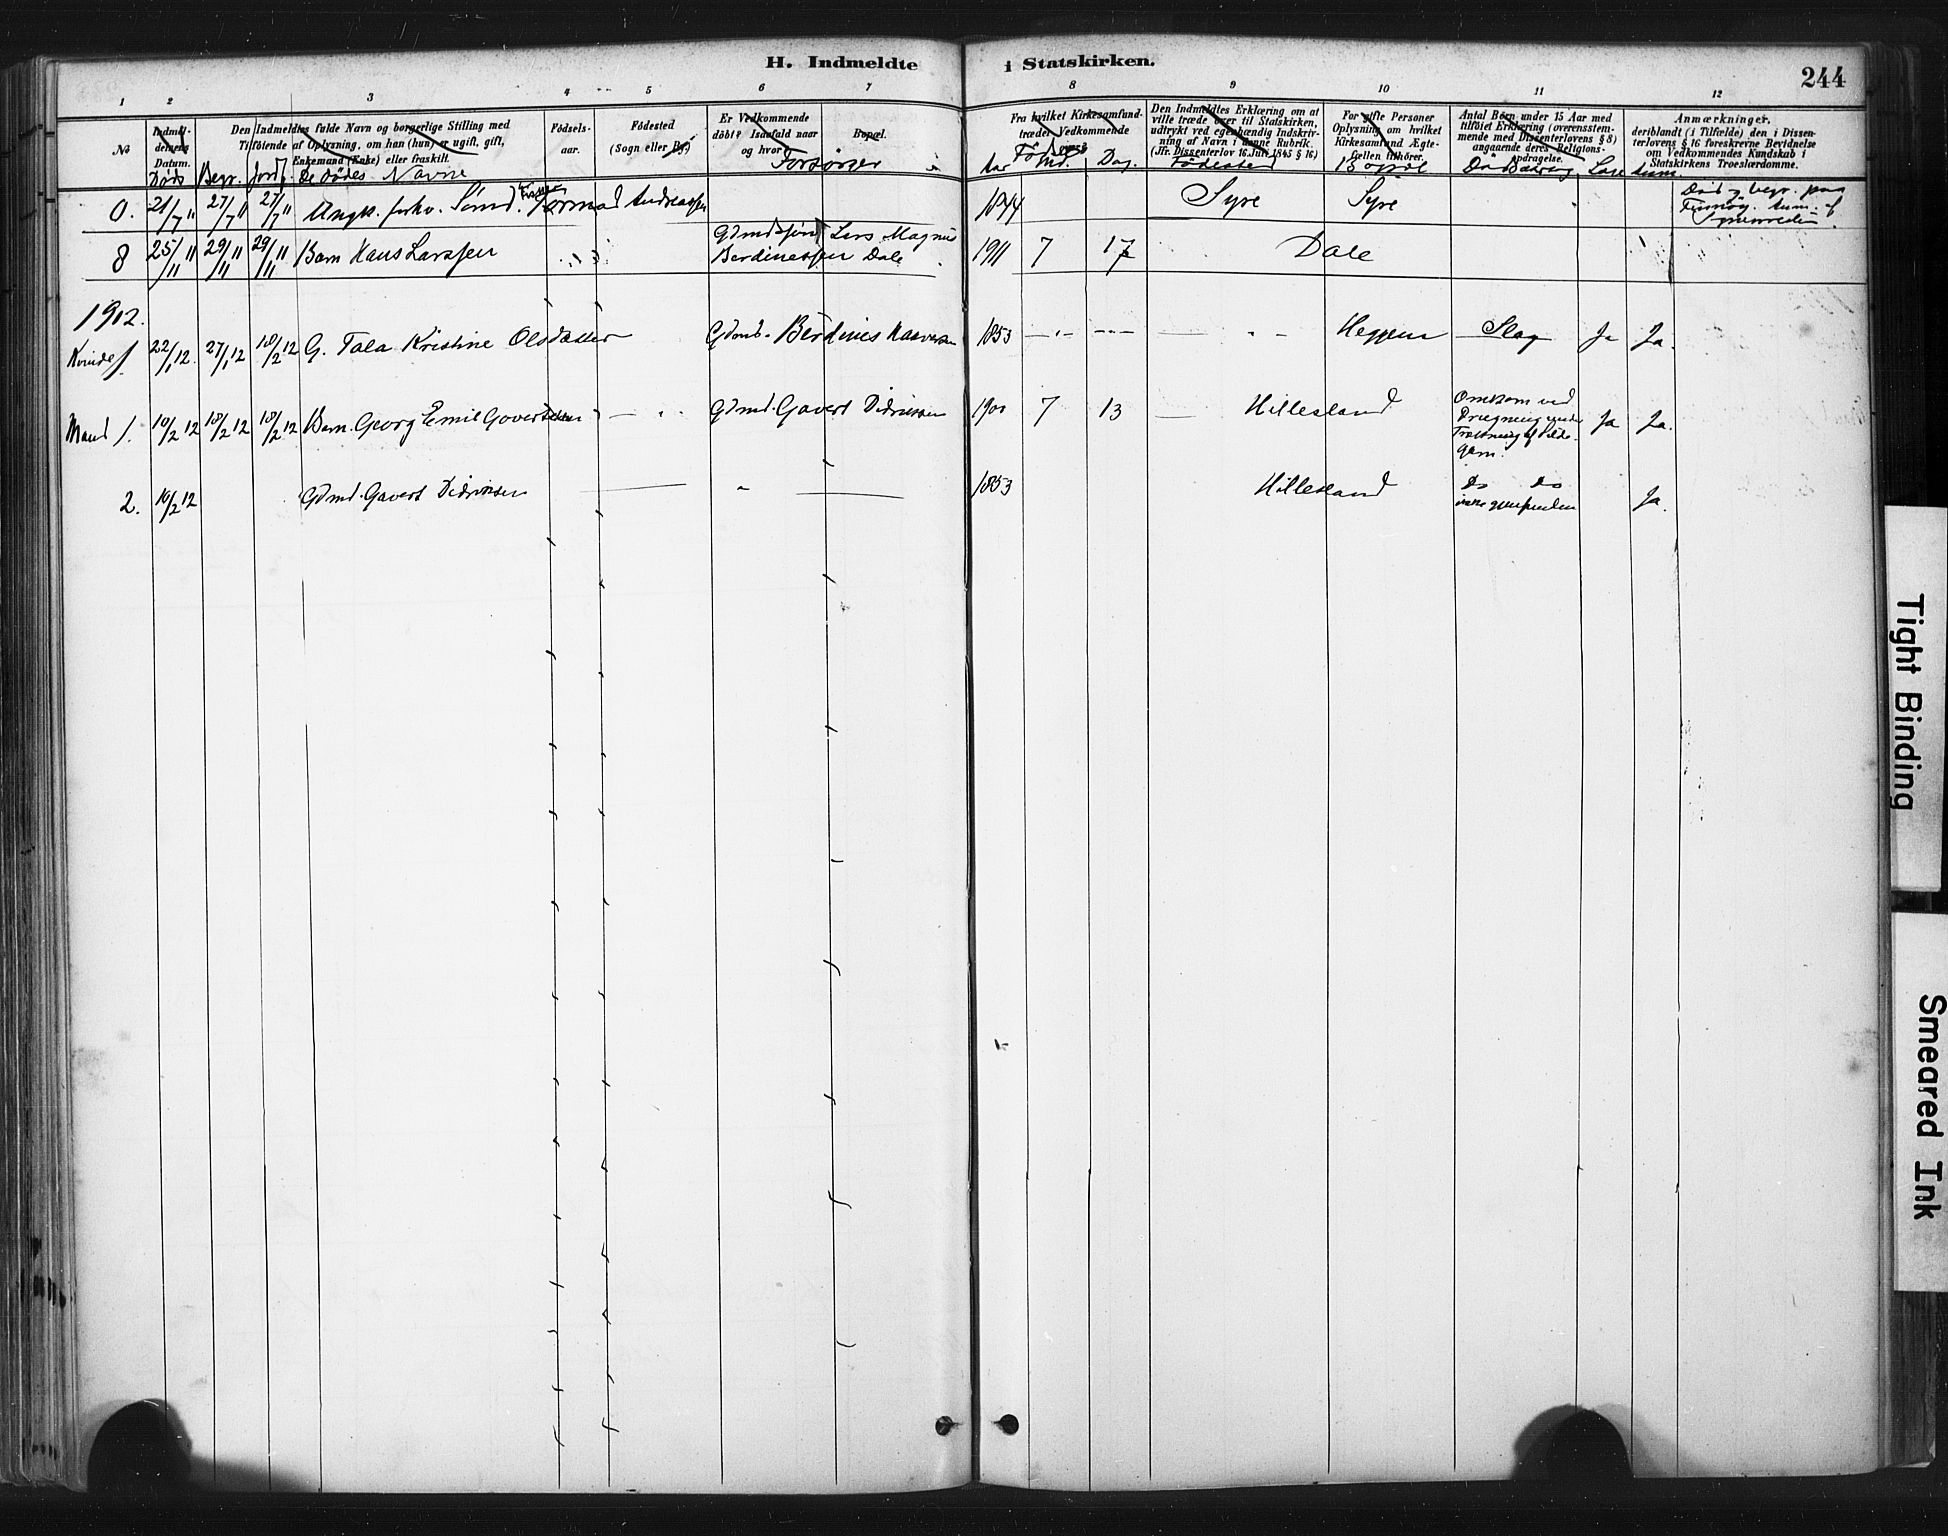 H. Indmeldte i Statskirken.
244
1 2 3 4 5 6 7 8 9 10 11 12
No
Indmel-
delsens
Datum.
Den Indmeldtes fulde Navn og borgerlige Stilling med
Tilføiende af Oplysning, om han (hun) er ugift, gift,
Enkemand (Enke) eller fraskilt.
Fødsels-
aar.
Fødested
(Sogn eller By)
Er Vedkommende
døbt? Isaafald naar
og hvor?
Bopæl.
Fra hvilket Kirkesamfund
træder Vedkommende
Den Indmeldtes Erklæring om at
ville træde over til Statskirken,
udtrykt ved egenhændig Indskriv-
ning af Navn i denne Rubrik.
(Jfr. Dissenterlov 16 Juni 1845 § 16)
For gifte Personer
Oplysning om hvilket
Kirkesamfund Ægte-
fællen tilhører.
Antal Børn under 15 Aar med
tilføiet Erklæring (overensstem-
mende med Dissenterlovens § 8)
angaaende deres Religions-
opdragelse.
Anmærkninger,
deriblandt (i Tilfælde) den i Dissen-
terlovens § 16 foreskrevne Bevidnelse
om Vedkommendes Kundskab i
Statskirkens Troeslærdomme.
Døds Begr. Jordf. De dødes Navne
Forsørger
Aar Md. Dag. Fødested Bopæl
0. 21/7 11 27/7 11 27/7 11 Tormod Andreassen 1844 Syre Syre
Død og begr. paa
8 25/11 11 29/11 11 29/11 11 Barn Hans Larssen Lars Magnus
Berdinessen Dale 1911 7 17 Dale
1912.
Kvinde 1. 22/1 12. 27/1 12 18/2 12 G. Tala Kristine Olsdatter Gdmd. Berdines 1853 Heggem Slag Ja Ja.
Mand 1. 10/2 12 18/2 12 18/2 12 Barn. Georg Emil Govertsen Gdmd. Govert Didriksen 1900 7 13 Hillesland
Omkom ved
Drugning under
Trækning af Silde-
garn.
Ja Ja.
2. 10/2 12 Gdmd. Govert Didriksen 1853 Hillesland Do Do
Ja.
Tight Binding
Smeared Ink